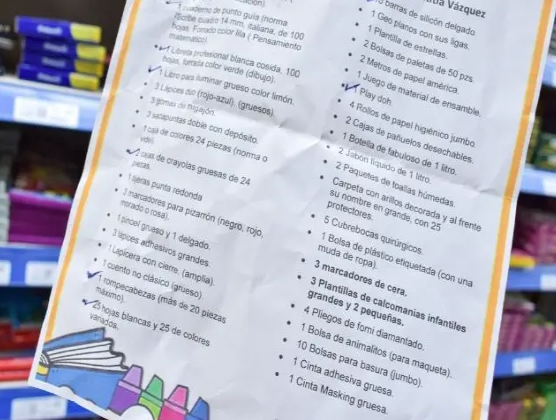 1 cuaderno de punto guía (norma
Escribe cuadro 14 mm, italiana, de 100
hojas. Forrado color lila ( Pensamiento
matemático)
1 Libreta profesional blanca cosida, 100
hojas, forrada color verde (dibujo).
1 Libro para iluminar grueso color limón.
3 Lápices duo (rojo-azul). (gruesos).
3 gomas de migajón.
3 sacapuntas doble con depósito.
1 caja de colores 24 piezas (norma o
1 cajas de crayolas gruesas de 24
piezas.
1 tijeras punta redonda
3 marcadores para pizarrón (negro, rojo,
morado o rosa).
1 pincel grueso y 1 delgado.
3 lápices adhesivos grandes
1 Lapicera con cierre. (amplia).
1 cuento no clásico (grueso)
1 rompecabezas (más de 20 piezas
máximo).
25 hojas blancas y 25 de colores
variados.
Vázquez
barras de silicón delgado.
1 Geo planos con sus ligas.
1 Plantilla de estrellas.
2 Bolsas de paletas de 50 pzs.
2 Metros de papel américa.
1 Juego de material de ensamble.
Play doh.
4 Rollos de papel higiénico jumbo.
2 Cajas de pañuelos desechables.
1 Botella de fabuloso de 1 litro.
2 Jabón líquido de 1 litro.
2 Paquetes de toallas húmedas.
Carpeta con arillos decorada y al frente
su nombre en grande, con 25
protectores.
5 Cubrebocas quirúrgicos.
1 Bolsa de plástico etiquetada (con una
muda de ropa).
3 marcadores de cera.
3 Plantillas de calcomanías infantiles
grandes y 2 pequeñas.
4 Pliegos de fomi diamantado.
1 Bolsa de animalitos (para maqueta).
10 Bolsas para basura (jumbo).
1 Cinta adhesiva gruesa.
1 Cinta Masking gruesa.